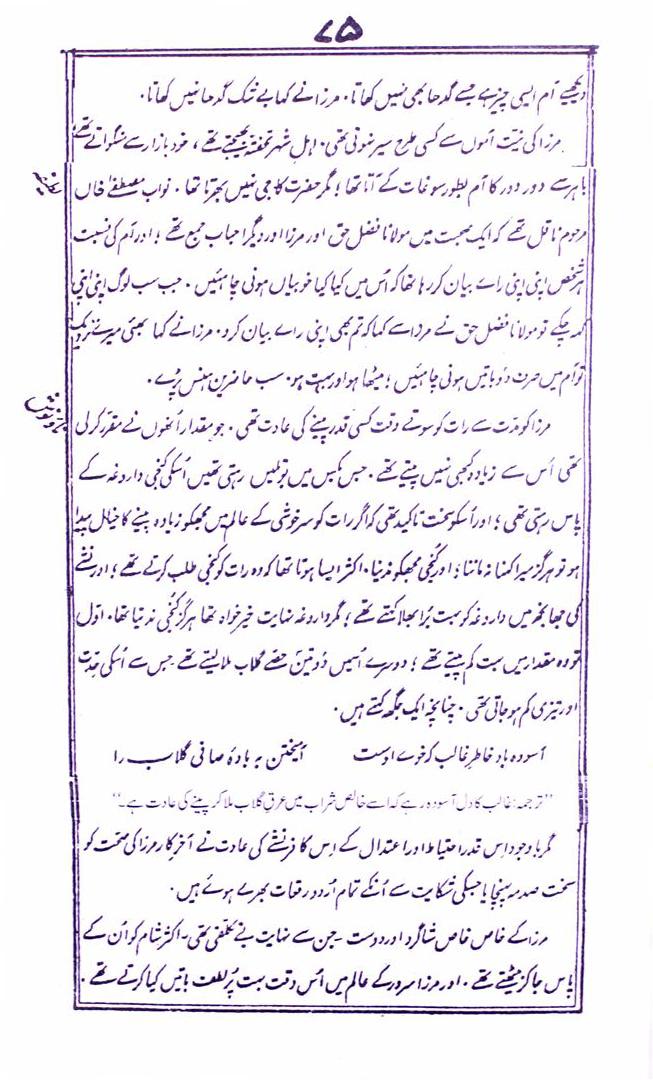 ۷۵
دیکھیے آم ایسی چیز ہے جسے گدھا بھی نہیں کھاتا۔ مرزا نے کہا بے شک گدھا نہیں کھاتا۔
مرزا کی نیت آموں سے کسی طرح سیر نہوتی تھی۔ اہل شہر تحفۃً بھیجتے تھے، خود بازار سے منگواتے تھے
باہر سے دور دور کا آم بطور سوغات کے آتا تھا؛ مگر حضرت کا جی نہیں بھرتا تھا۔ نواب مصطفےٰ خاں
مرحوم ناقل تھے کہ ایک صحبت میں مولانا فضل حق اور مرزا اور دیگر احباب جمع تھے؛ اور آم کی نسبت
ہر شخص اپنی اپنی راے بیان کر رہا تھا کہ اُس میں کیا کیا خوبیاں ہونی چاہئیں۔ جب سب لوگ اپنی اپنی
کہہ چکے تو مولانا فضل حق نے مرزا سے کہا کہ تم بھی اپنی راے بیان کرو۔ مرزا نے کہا بھئی میرے نزدیک
تو آم میں صرف دو باتیں ہونی چاہئیں؛ میٹھا ہو اور بہت ہو۔ سب حاضرین ہنس پڑے۔
مرزا کو مدت سے رات کو سوتے وقت کسی قدر پینے کی عادت تھی۔ جو مقدار اُنھوں نے مقرر کر لی
تھی اُس سے زیادہ کبھی نہیں پیتے تھے۔ جس بکس میں بوتلیں رہتی تھیں اُسکی کنجی داروغہ کے
پاس رہتی تھی؛ اور اُسکو سخت تاکید تھی کہ اگر رات کو سرخوشی کے عالم میں مجھکو زیادہ پینے کا خیال پیدا
ہو تو ہرگز میرا کہنا نہ ماننا؛ اور کنجی مجھکو ندینا۔ اکثر ایسا ہوتا تھا کہ وہ رات کو کنجی طلب کرتے تھے؛ اور نشے
کی جھانجھ میں داروغہ کو بہت بُرا بھلا کہتے تھے؛ مگر داروغہ نہایت خیر خواہ تھا ہرگز کنجی ندیتا تھا۔ اول
تو وہ مقدار میں بہت کم پیتے تھے؛ دوسرے اُسمیں دو تین حصے گلاب ملا لیتے تھے جس سے اُسکی حدت
اور تیزی کم ہو جاتی تھی۔ چنانچہ ایک جگہ کہتے ہیں۔
آسودہ باد خاطرِ غالب کہ خوے اوست آمیختن بہ بادۂ صافی گلاب را
"ترجمہ: غالب کا دل آسودہ رہے کہ اسے خالص شراب میں عرقِ گلاب ملا کر پینے کی عادت ہے۔"
مگر باوجود اِس قدر احتیاط اور اعتدال کے اِس کافر نشے کی عادت نے آخر کار مرزا کی صحت کو
سخت صدمہ پہنچایا جسکی شکایت سے اُنکے تمام اُردو رقعات بھرے ہوئے ہیں۔
مرزا کے خاص خاص شاگرد اور دوست - جن سے نہایت بے تکلفی تھی - اکثر شام کو اُن کے
پاس جا کر بیٹھتے تھے۔ اور مرزا سرور کے عالم میں اُس وقت بہت پُر لطف باتیں کیا کرتے تھے۔